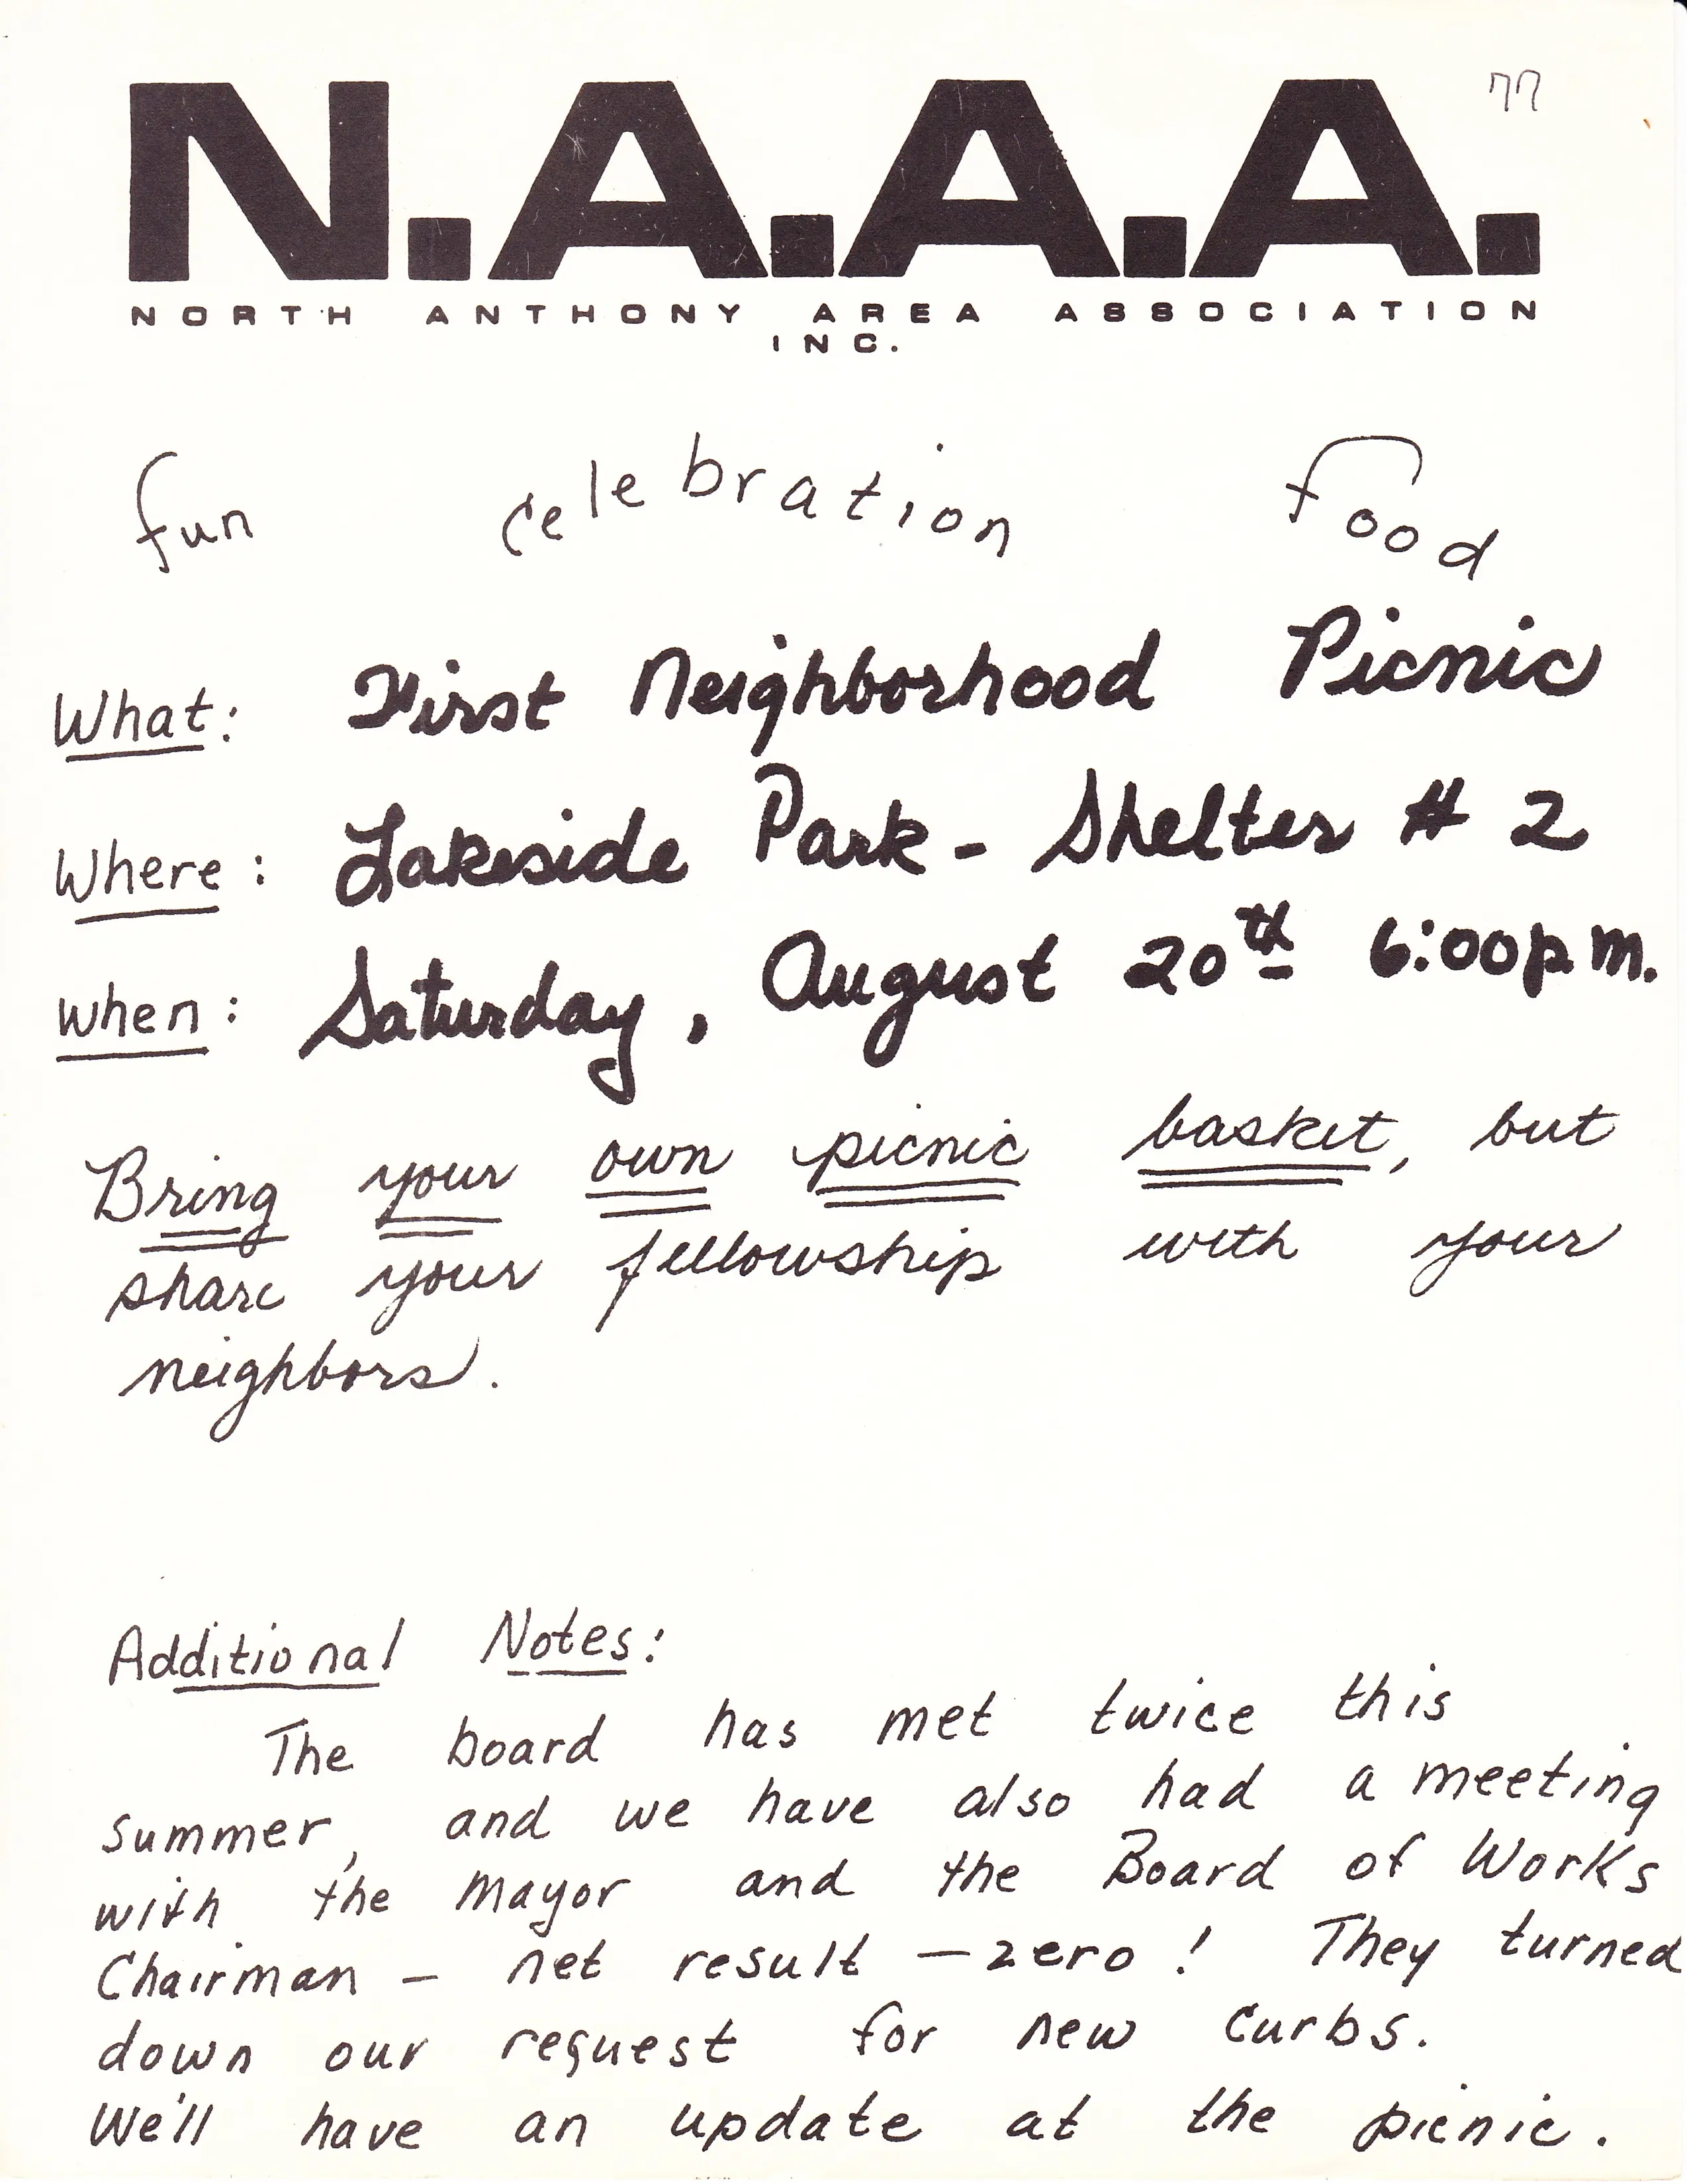 77
N.A.A.A.
NORTH ANTHONY AREA ASSOCIATION
INC.
fun celebration food
What: First Neighborhood Picnic
Where: Lakeside Park - Shelter # 2
When: Saturday, August 20th 6:00 p.m.
Bring your own picnic basket, but
share your fellowship with your
neighbors.
Additional Notes:
The board has met twice this
summer, and we have also had a meeting
with the Mayor and the Board of Works
Chairman - net result - zero! They turned
down our request for new curbs.
We'll have an update at the picnic.